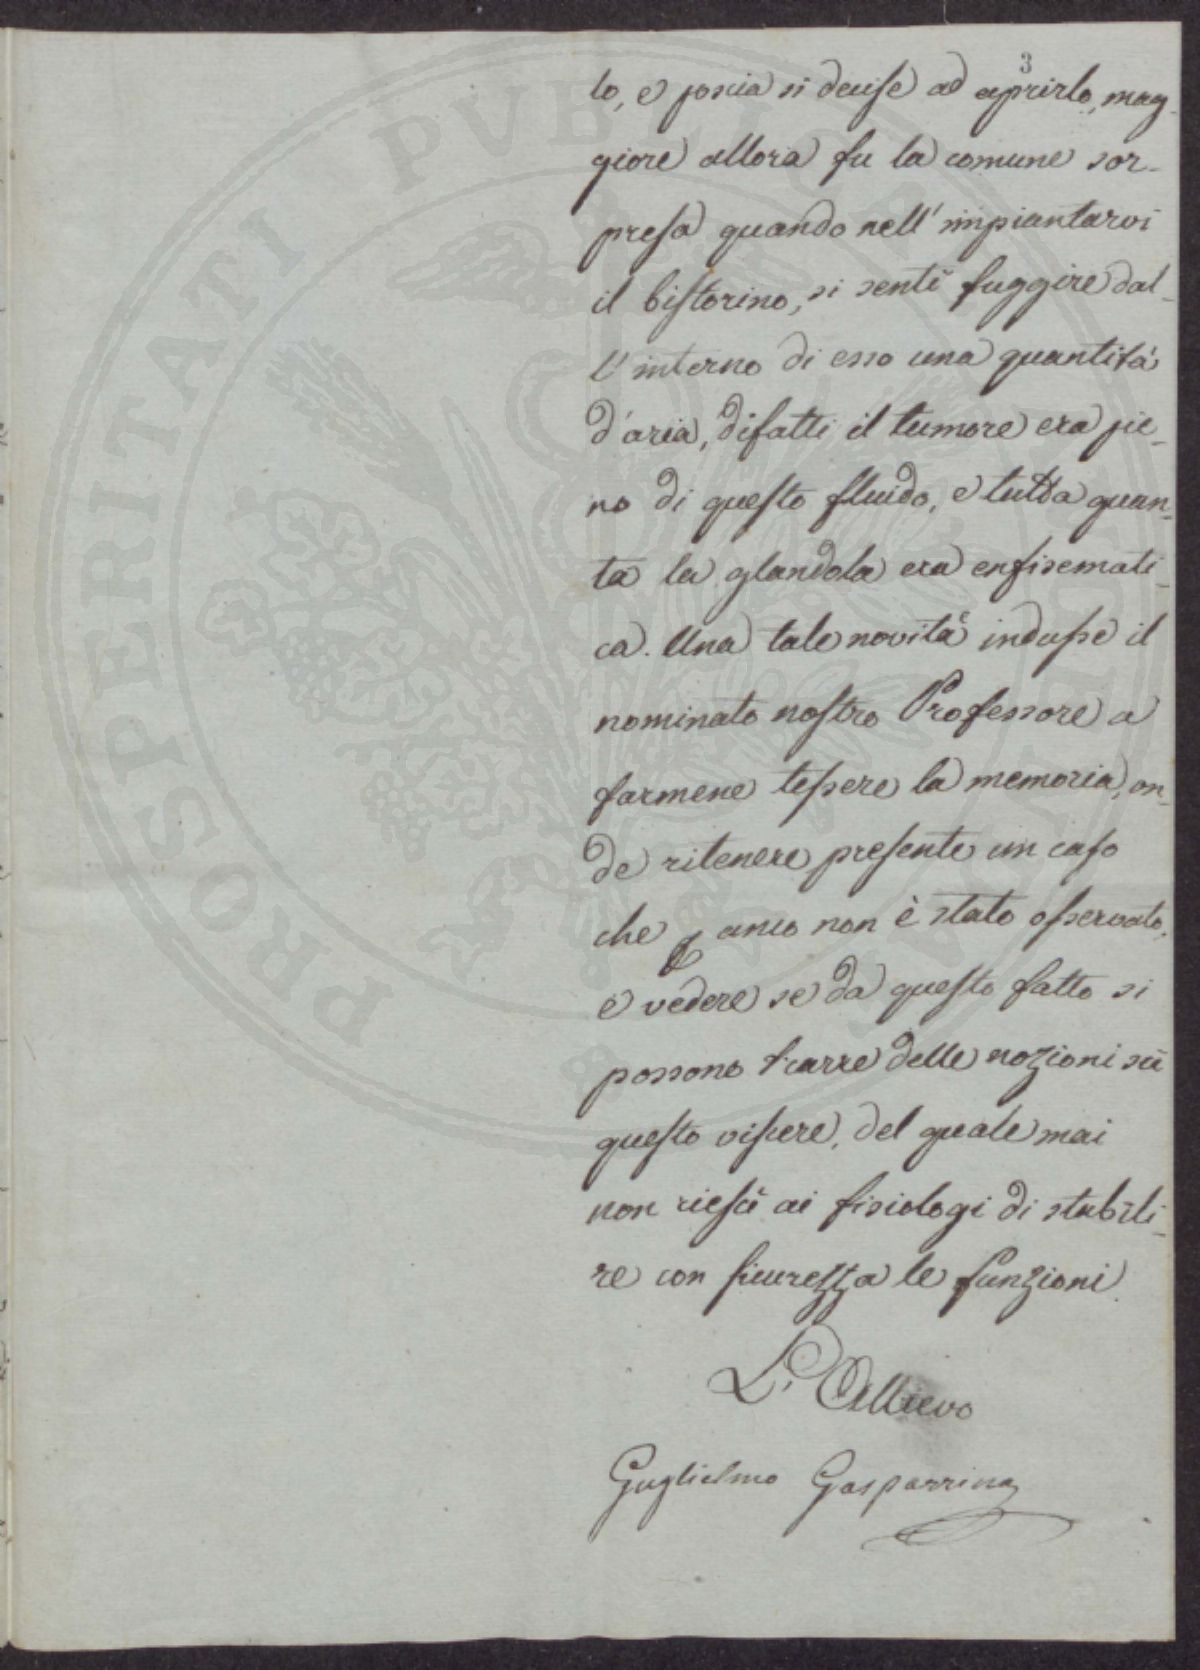 3
lo, e poscia si decise ad aprirlo, mag-
giore allora fu la comune sor-
presa quando nell'impiantarvi
il bistorino, si sentì fuggire dal-
l'interno di esso una quantità
d'aria, difatti il tumore era pie-
no di questo fluido, e tutta quan-
ta la glandola era enfisemati-
ca. Una tale novità indusse il
nominato nostro Professore a
farmene tessere la memoria, on-
de ritenere presente un caso
che anco non è stato osservato,
e vedere se da questo fatto si
possono trarre delle nozioni sù
questo viscere, del quale mai
non riescì ai fisiologi di stabili-
re con sicurezza le funzioni.
L'Allievo
Guglielmo Gasparrini
PROSPERITATI PVBLICAE